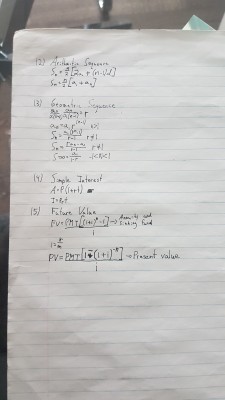 (2) Arithmetic Sequence
Sn = n/2 [2a1 + (n-1)d]
Sn = n/2 [a1 + an]
(3) Geometric Sequence
= r
an = a1 r^(n-1) n>1
Sn = a1(r^n-1)/r-1 r≠1
Sn = r an - a1/r-1 r≠1
S∞ = a1/1-r -1<r<1
(4) Simple Interest
A=P(1+rt)
I=Prt
(5) Future Value
FV = PMT [(1+i)^n - 1] / i → Annuity and Sinking Fund
i = r/m
PV = PMT [1-(1+i)^-n] / i → Present value